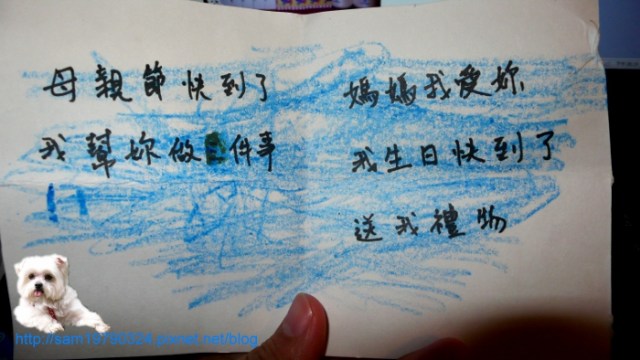 母親節快到了
我幫妳做件事
媽媽我愛妳
我生日快到了
送我禮物